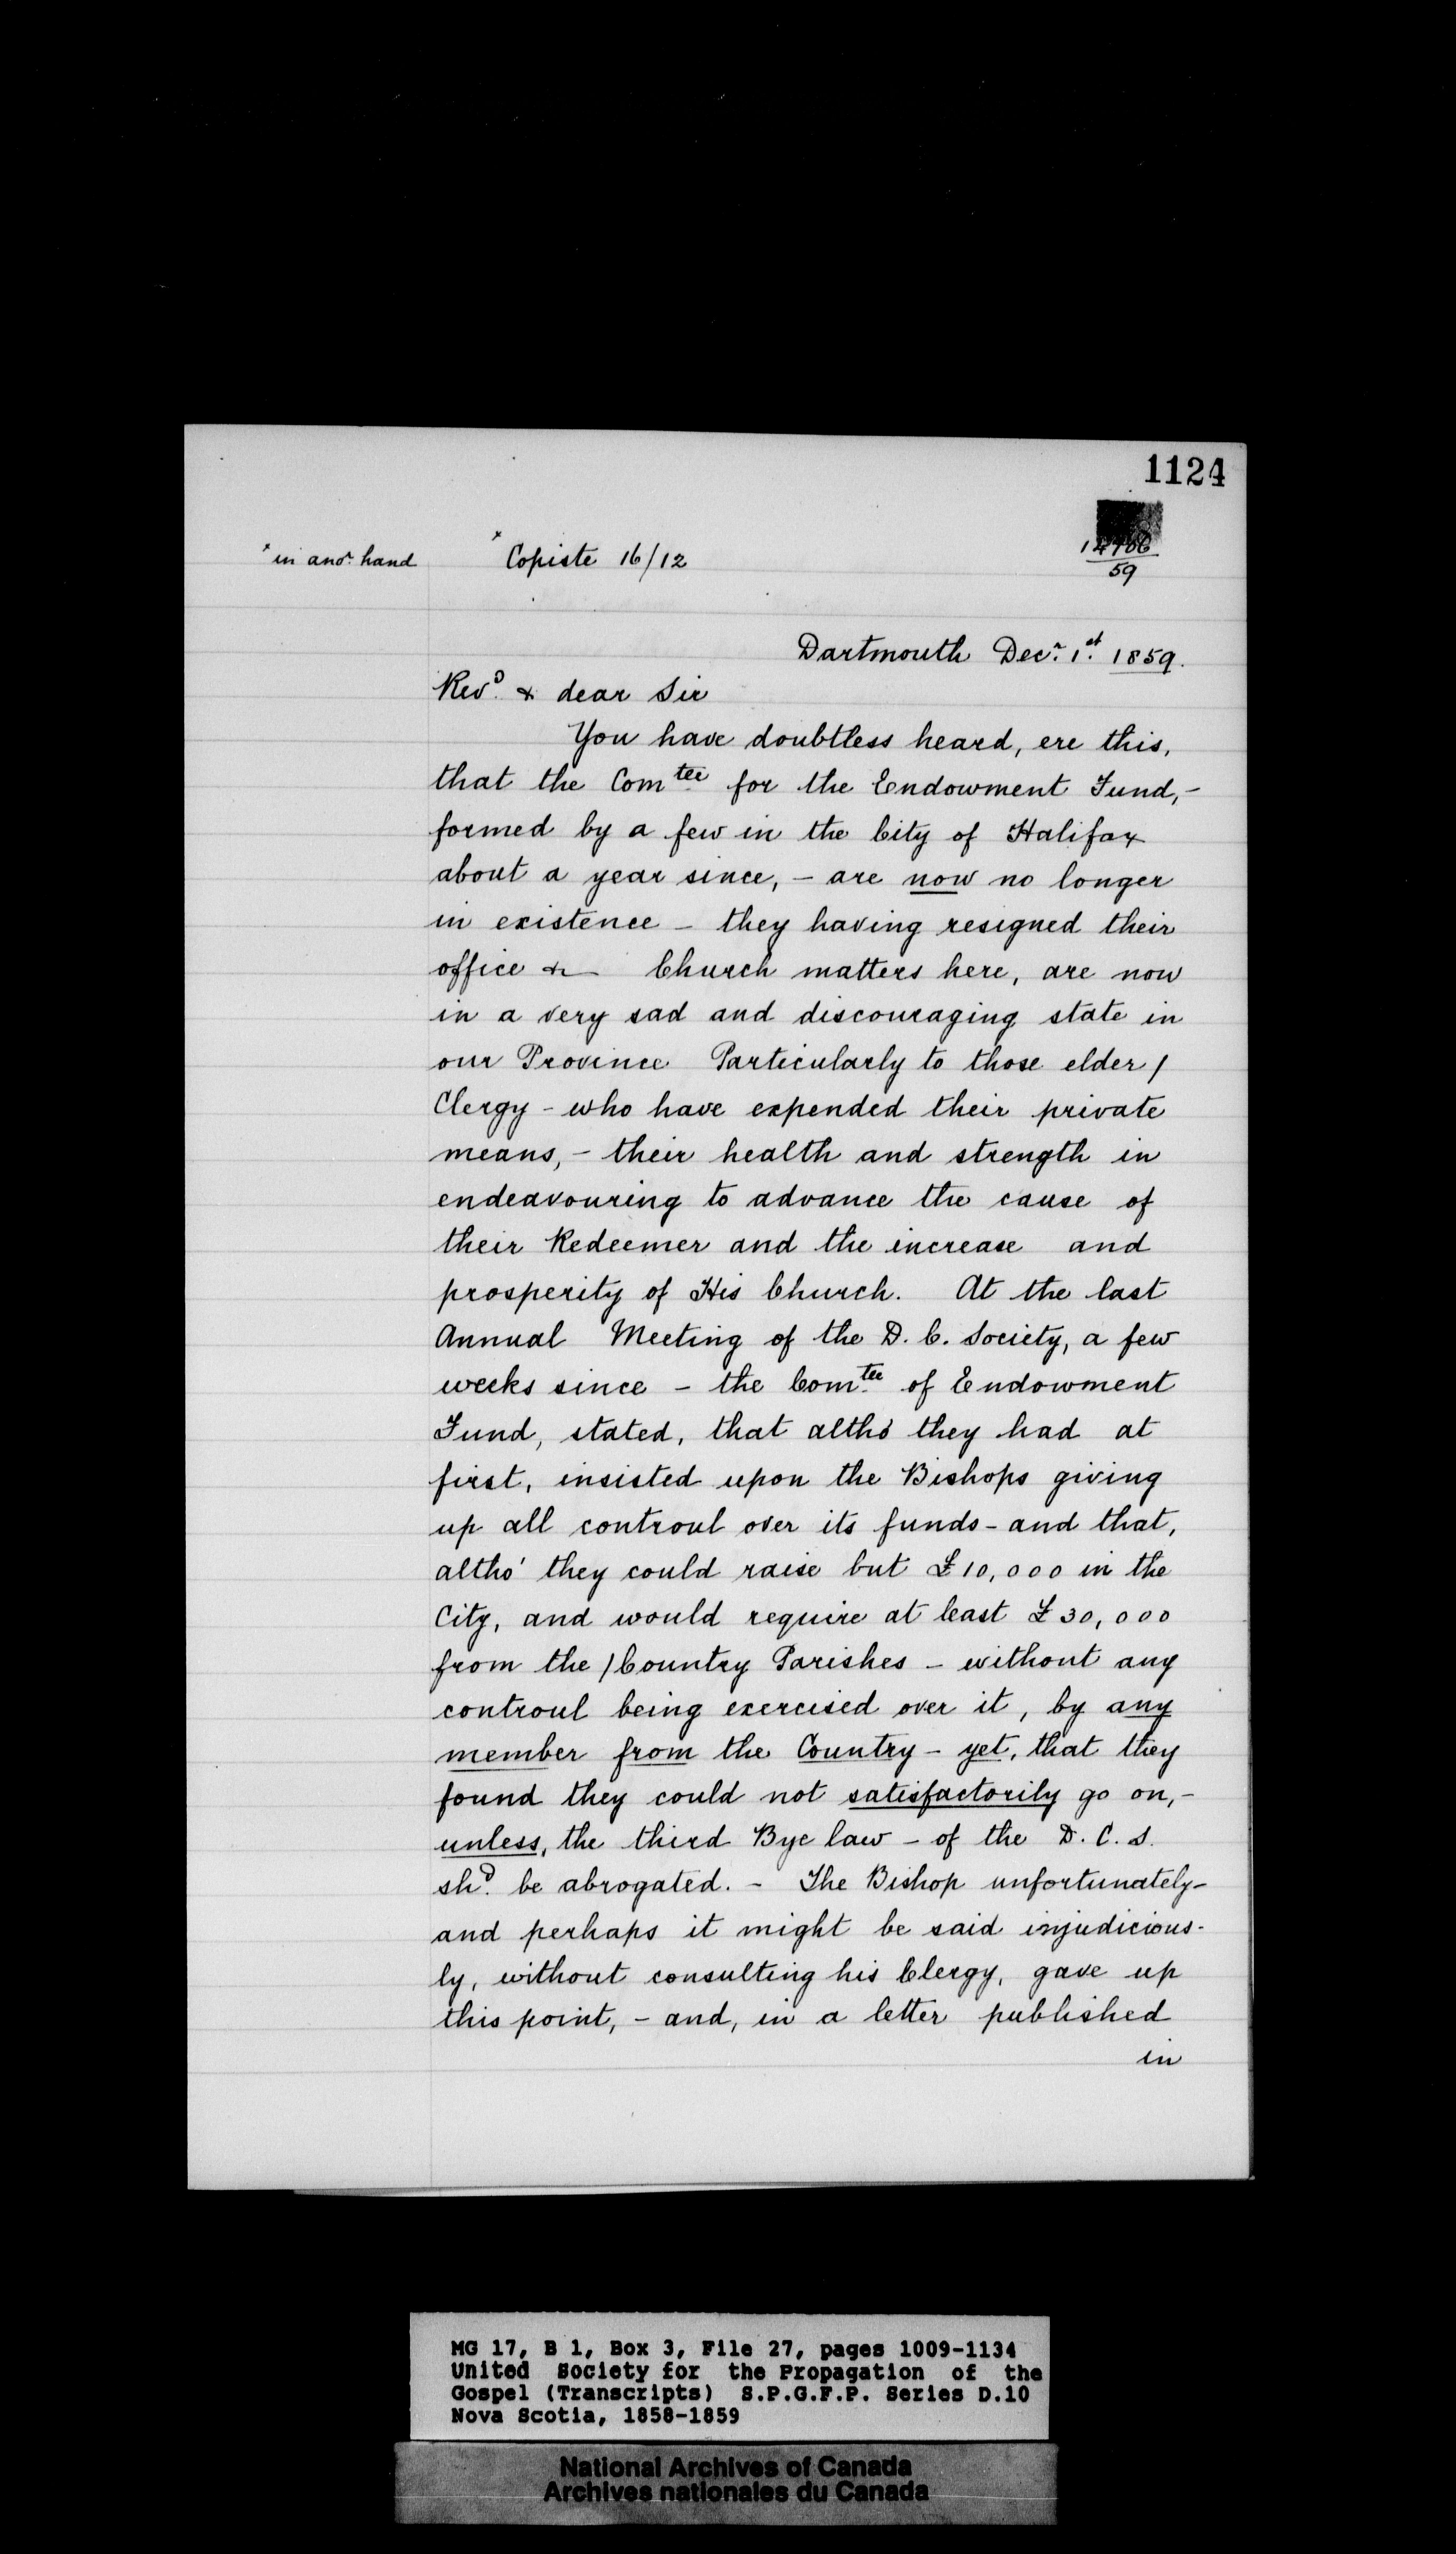 1124
59
* in anor. hand
* Copiste 16/12
Dartmouth Decr. 1st. 1859.
Revd. & dear Sir
You have doubtless heard, ere this,
that the Comtee for the Endowment Fund, -
formed by a few in the City of Halifax
about a year since, - are now no longer
in existence - they having resigned their
office & Church matters here, are now
in a very sad and discouraging state in
our Province Particularly to those elder /
Clergy - who have expended their private
means, - their health and strength in
endeavouring to advance the cause of
their Redeemer and the increase and
prosperity of His Church. At the last
Annual Meeting of the D. C. Society, a few
weeks since - the Comtee of Endowment
Fund, stated, that altho' they had at
first, insisted upon the Bishops giving
up all controul over its funds - and that,
altho' they could raise but £10,000 in the
City, and would require at least £30,000
from the / Country Parishes - without any
controul being exercised over it, by any
member from the Country - yet, that they
found they could not satisfactorily go on, -
unless, the third Bye law - of the D. C. S.
shd. be abrogated. - The Bishop unfortunately -
and perhaps it might be said injudicious-
ly, without consulting his Clergy, gave up
this point, - and, in a letter published
in
MG 17, B 1, Box 3, File 27, pages 1009-1134
United Society for the Propagation of the
Gospel (Transcripts) S.P.G.F.P. Series D.10
Nova Scotia, 1858-1859
National Archives of Canada
Archives nationales du Canada